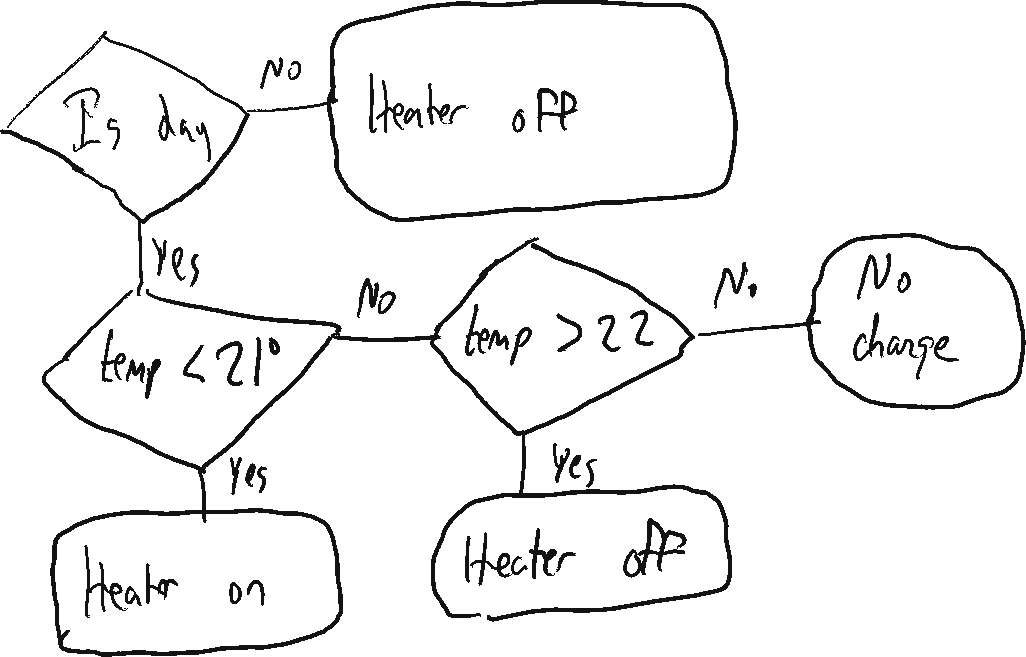 Is day
No
Heater off
Yes
temp < 21°
No
temp > 22
No
No
change
Yes
Heater on
Yes
Heater off